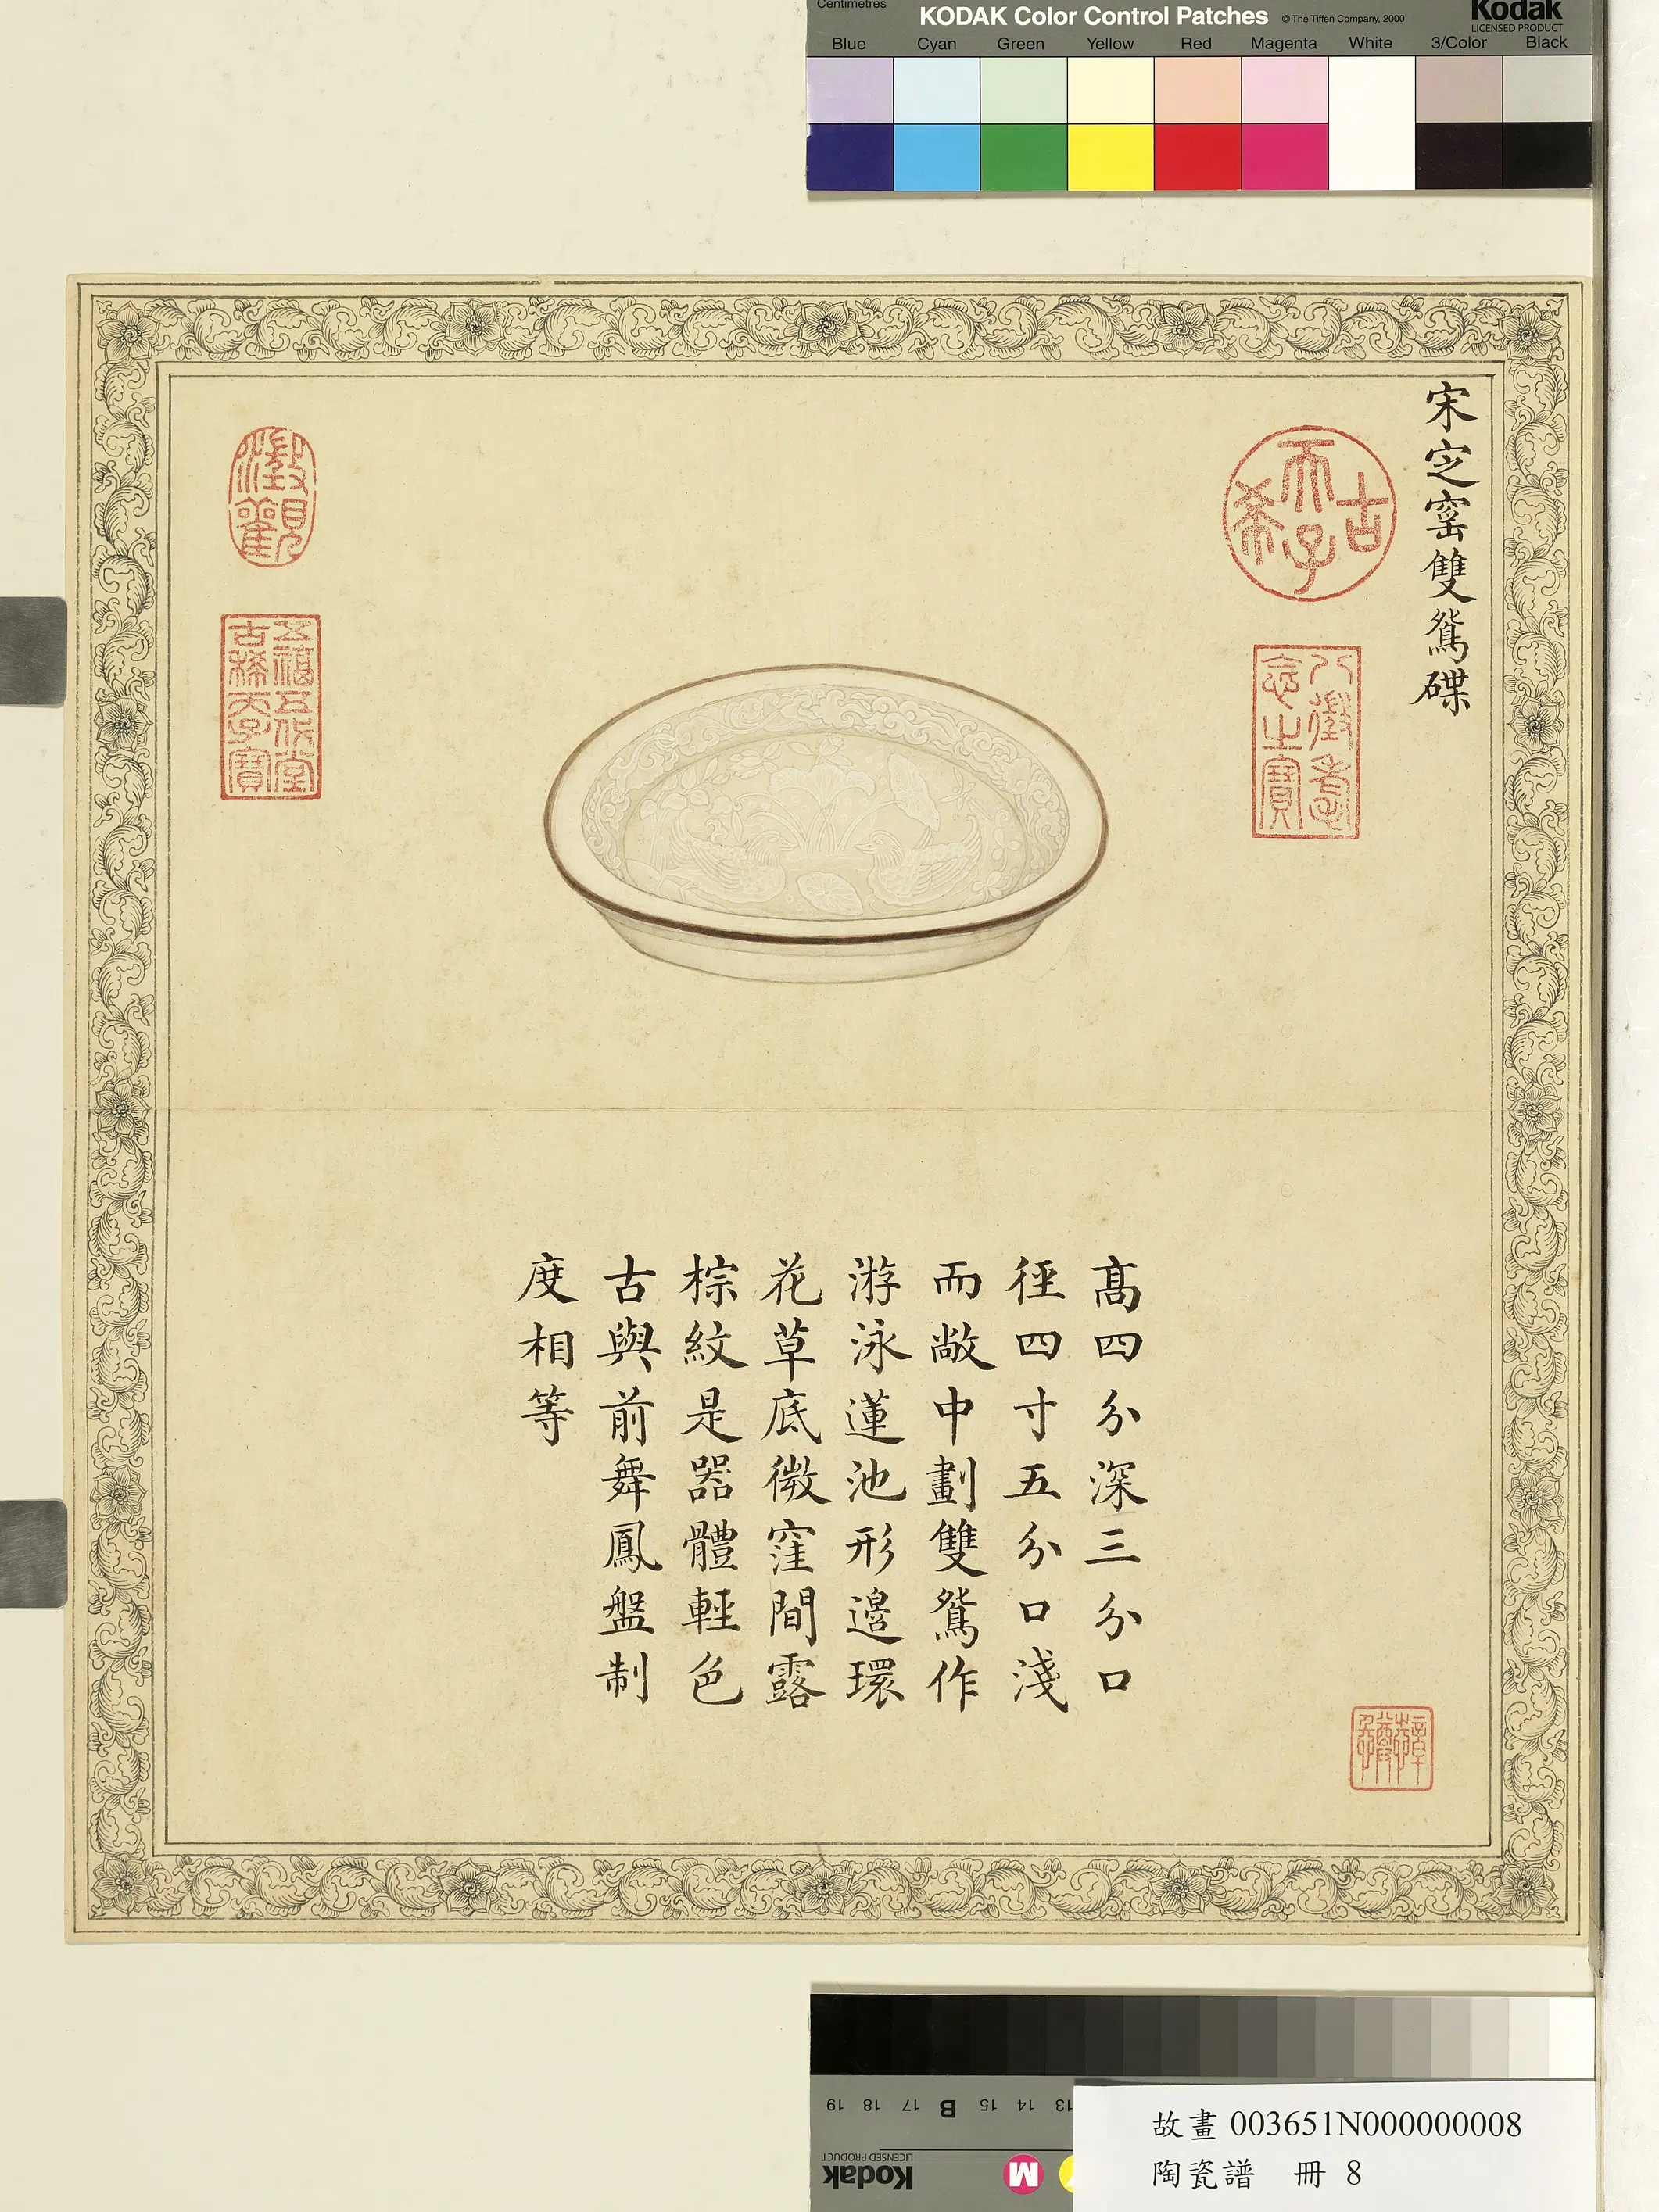 Centimetres
KODAK Color Control Patches
© The Tiffen Company, 2000
Kodak
LICENSED PRODUCT
Blue Cyan Green Yellow Red Magenta White 3/Color Black
宋定窰雙鴛碟
古希天子
八徵耄念之寶
澂觀
五福五代堂古稀天子寶
高四分深三分口
徑四寸五分口淺
而敞中劃雙鴛作
游泳蓮池形邉環
花草底微窪間露
棕紋是器體輕色
古與前舞鳳盤制
度相等
19 18 17 B 15 14 13
Kodak
LICENSED PRODUCT
M
故畫003651N000000008
陶瓷譜 冊 8